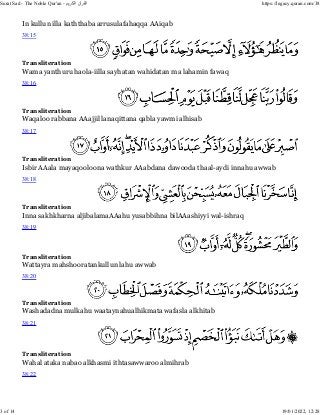 Surat Sad - The Noble Qur'an - القرآن الكريم
https://legacy.quran.com/38
In kullun illa kaththaba arrusulafahaqqa AAiqab
38:15
وَمَا يَنظُرُ هَٰٓؤُلَآءِ إِلَّا صَيْحَةً وَٰحِدَةً مَّا لَهَا مِن فَوَاقٍ ١٥
Transliteration
Wama yanthuru haola-illa sayhatan wahidatan ma lahamin fawaq
38:16
وَقَالُوا۟ رَبَّنَا عَجِّل لَّنَا قِطَّنَا قَبْلَ يَوْمِ ٱلْحِسَابِ ١٦
Transliteration
Waqaloo rabbana AAajjil lanaqittana qabla yawmi alhisab
38:17
ٱصْبِرْ عَلَىٰ مَا يَقُولُونَ وَٱذْكُرْ عَبْدَنَا دَاوُۥدَ ذَا ٱلْأَيْدِ ۖ إِنَّهُۥٓ أَوَّابٌ ١٧
Transliteration
Isbir AAala mayaqooloona wathkur AAabdana dawooda thaal-aydi innahu awwab
38:18
إِنَّا سَخَّرْنَا ٱلْجِبَالَ مَعَهُۥ يُسَبِّحْنَ بِٱلْعَشِىِّ وَٱلْإِشْرَاقِ ١٨
Transliteration
Inna sakhkharna aljibalamaAAahu yusabbihna bilAAashiyyi wal-ishraq
38:19
وَٱلطَّيْرَ مَحْشُورَةً ۖ كُلٌّ لَّهُۥٓ أَوَّابٌ ١٩
Transliteration
Wattayra mahshooratankullun lahu awwab
38:20
وَشَدَدْنَا مُلْكَهُۥ وَءَاتَيْنَٰهُ ٱلْحِكْمَةَ وَفَصْلَ ٱلْخِطَابِ ٢٠
Transliteration
Washadadna mulkahu waataynahualhikmata wafasla alkhitab
38:21
۞ وَهَلْ أَتَىٰكَ نَبَؤُا۟ ٱلْخَصْمِ إِذْ تَسَوَّرُوا۟ ٱلْمِحْرَابَ ٢١
Transliteration
Wahal ataka nabao alkhasmi ithtasawwaroo almihrab
38:22
3 of 14